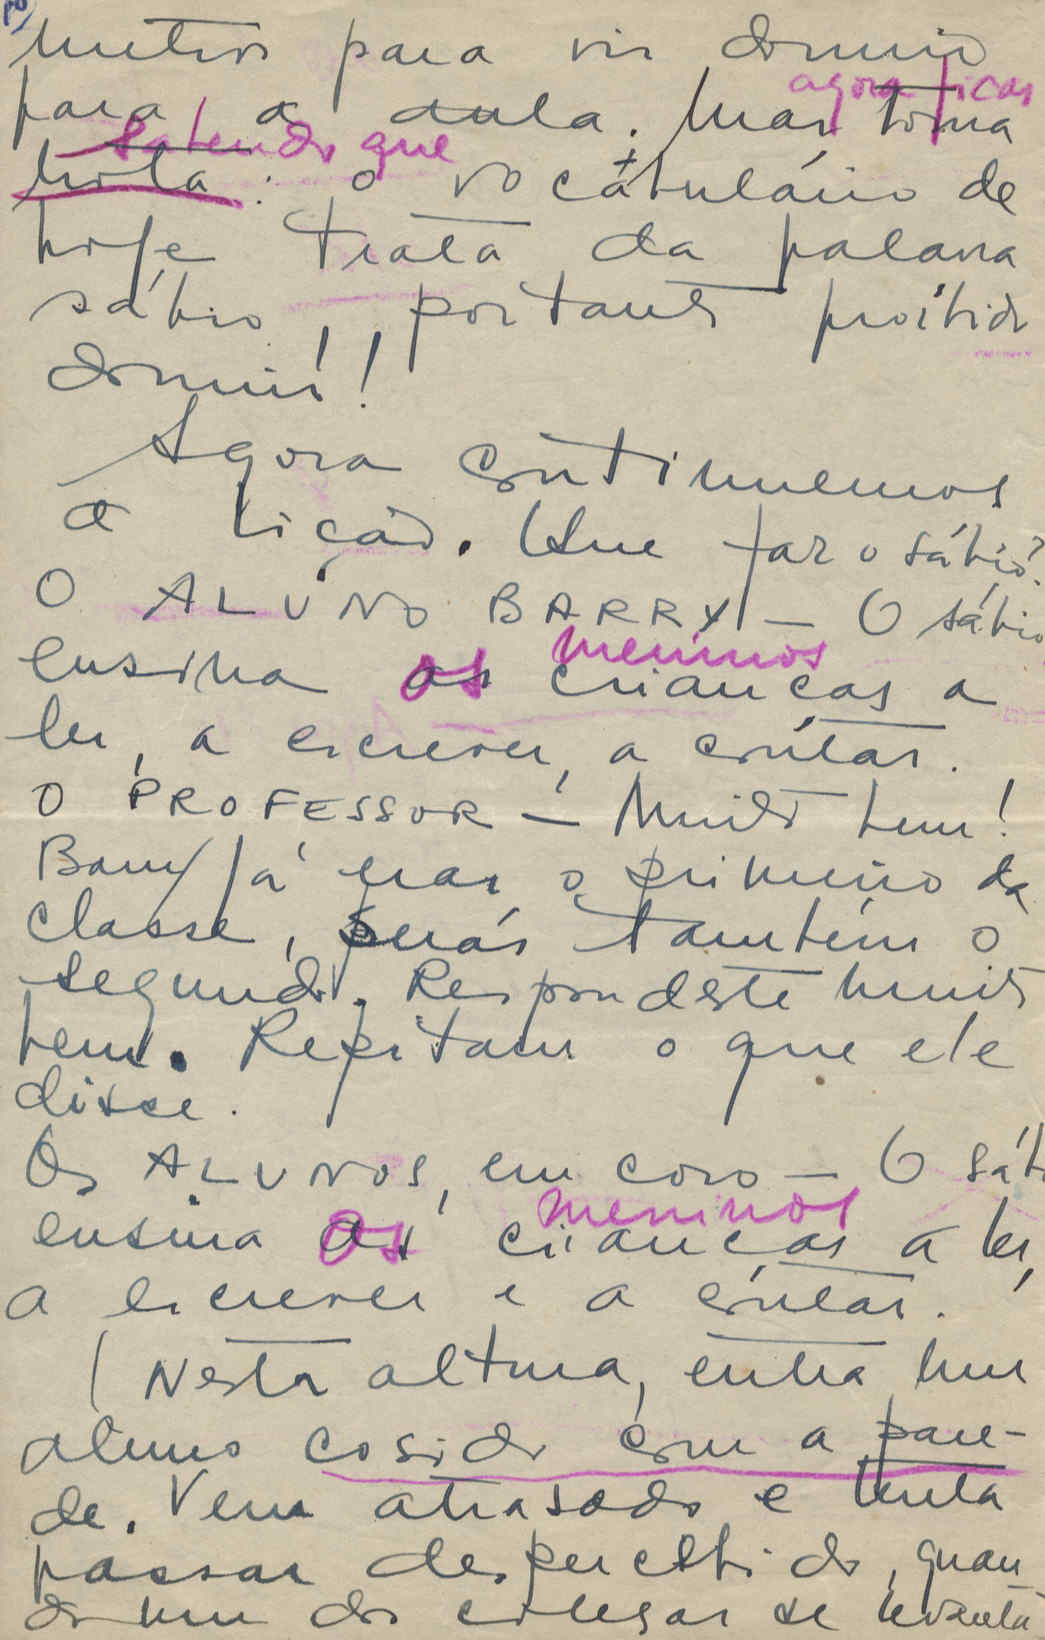 para vir dormir
agora ficas
para a aula. Mas toma
sabendo que
nota: o vocábulário de
hoje trata da palavra
sábio, portanto proíbido
dormir!
Agora continuemos
a lição. Que faz o sábio?
O ALUNO BARRY — O sábio
meninos
ensina os as crianças a
ler, a escrever, a contar.
O PROFESSOR — Muito bem!
Barry já eras o primeiro da
classe, serás também o
segundo. Respondeste muito
bem. Repitam o que ele
disse.
Os ALUNOS, em coro — O sáb
meninos
ensina os as crianças a ler,
a escrever e a contar.
(Nesta altura, entra um
aluno cosido com a pare-
de. Vem atrasado e tenta
passar despercebido, quan
do um dos colegas se levanta